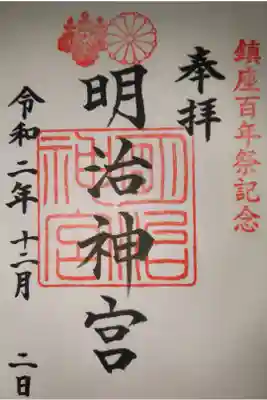 鎮座百年祭記念
奉拝
明治神宮
明治神宮
令和二年十二月二日